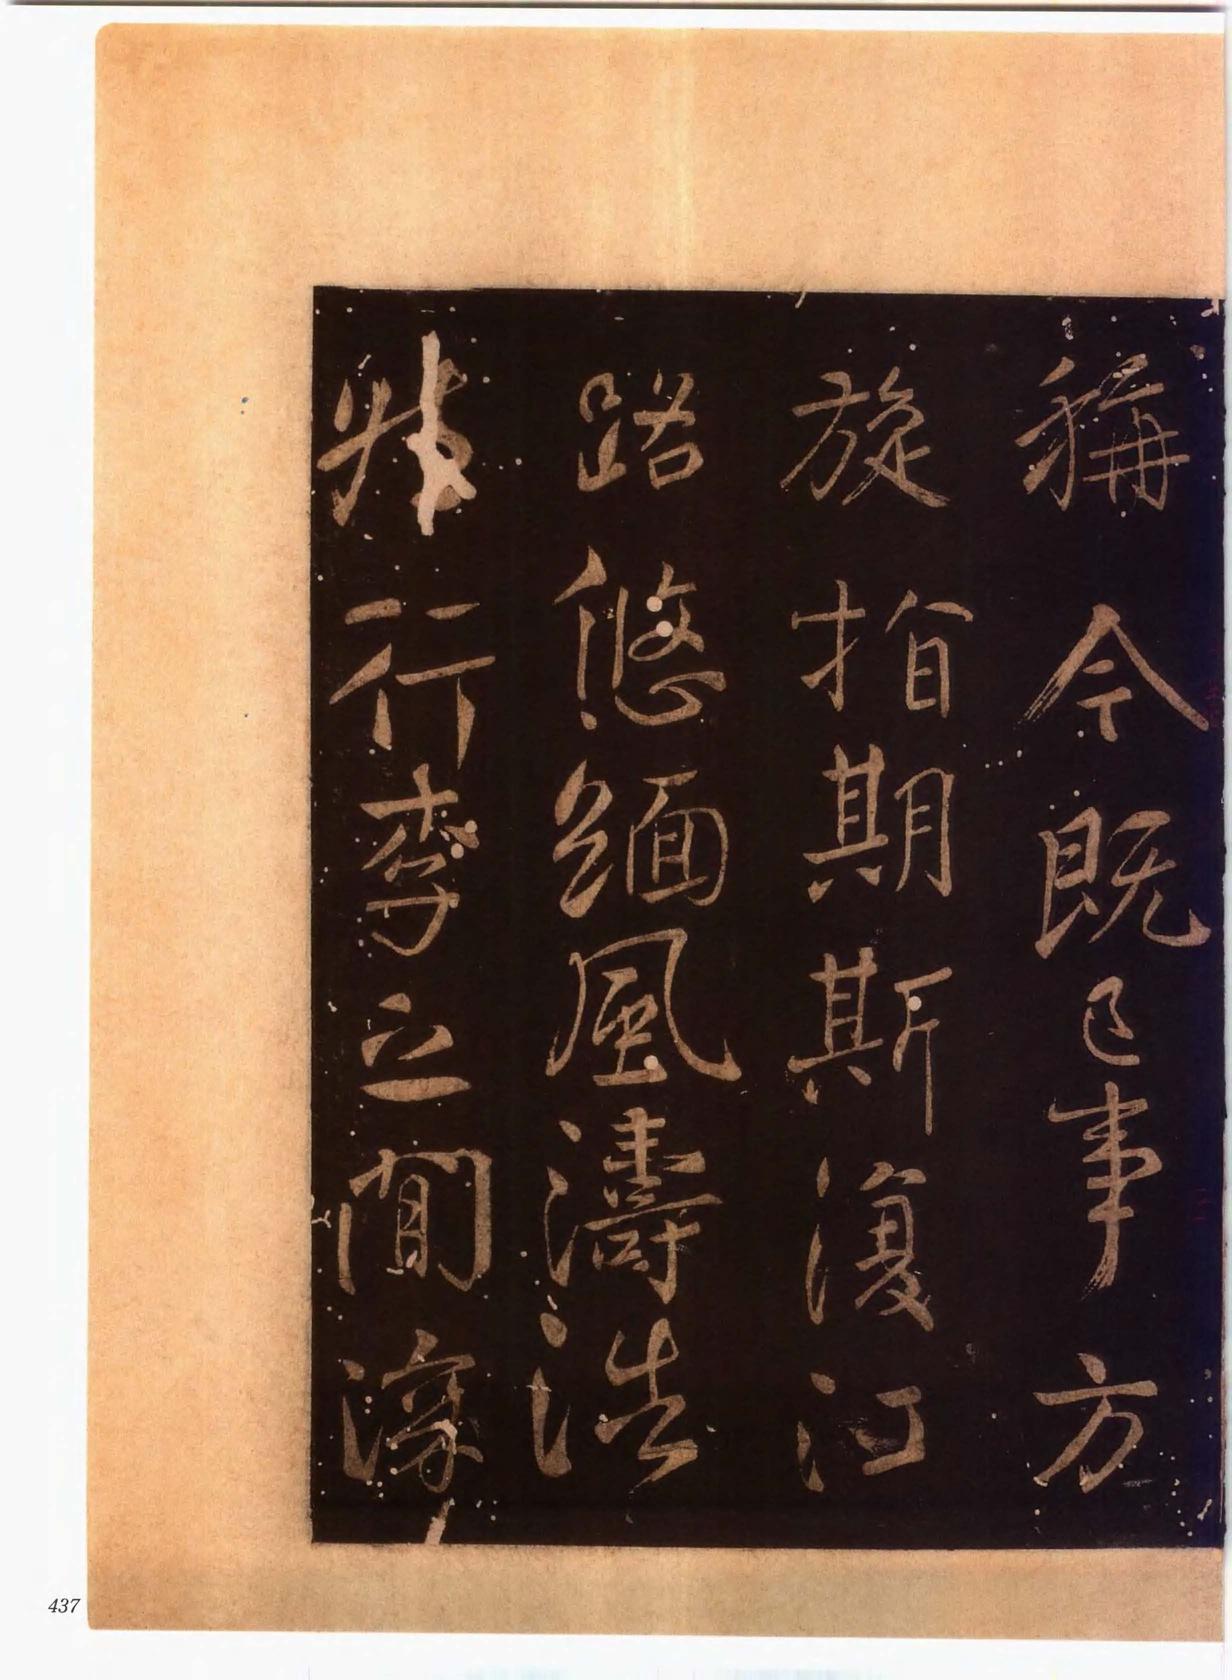 稱今既已事方
旋指期斯復江
路悠緬風濤浩
然行李之間深
437